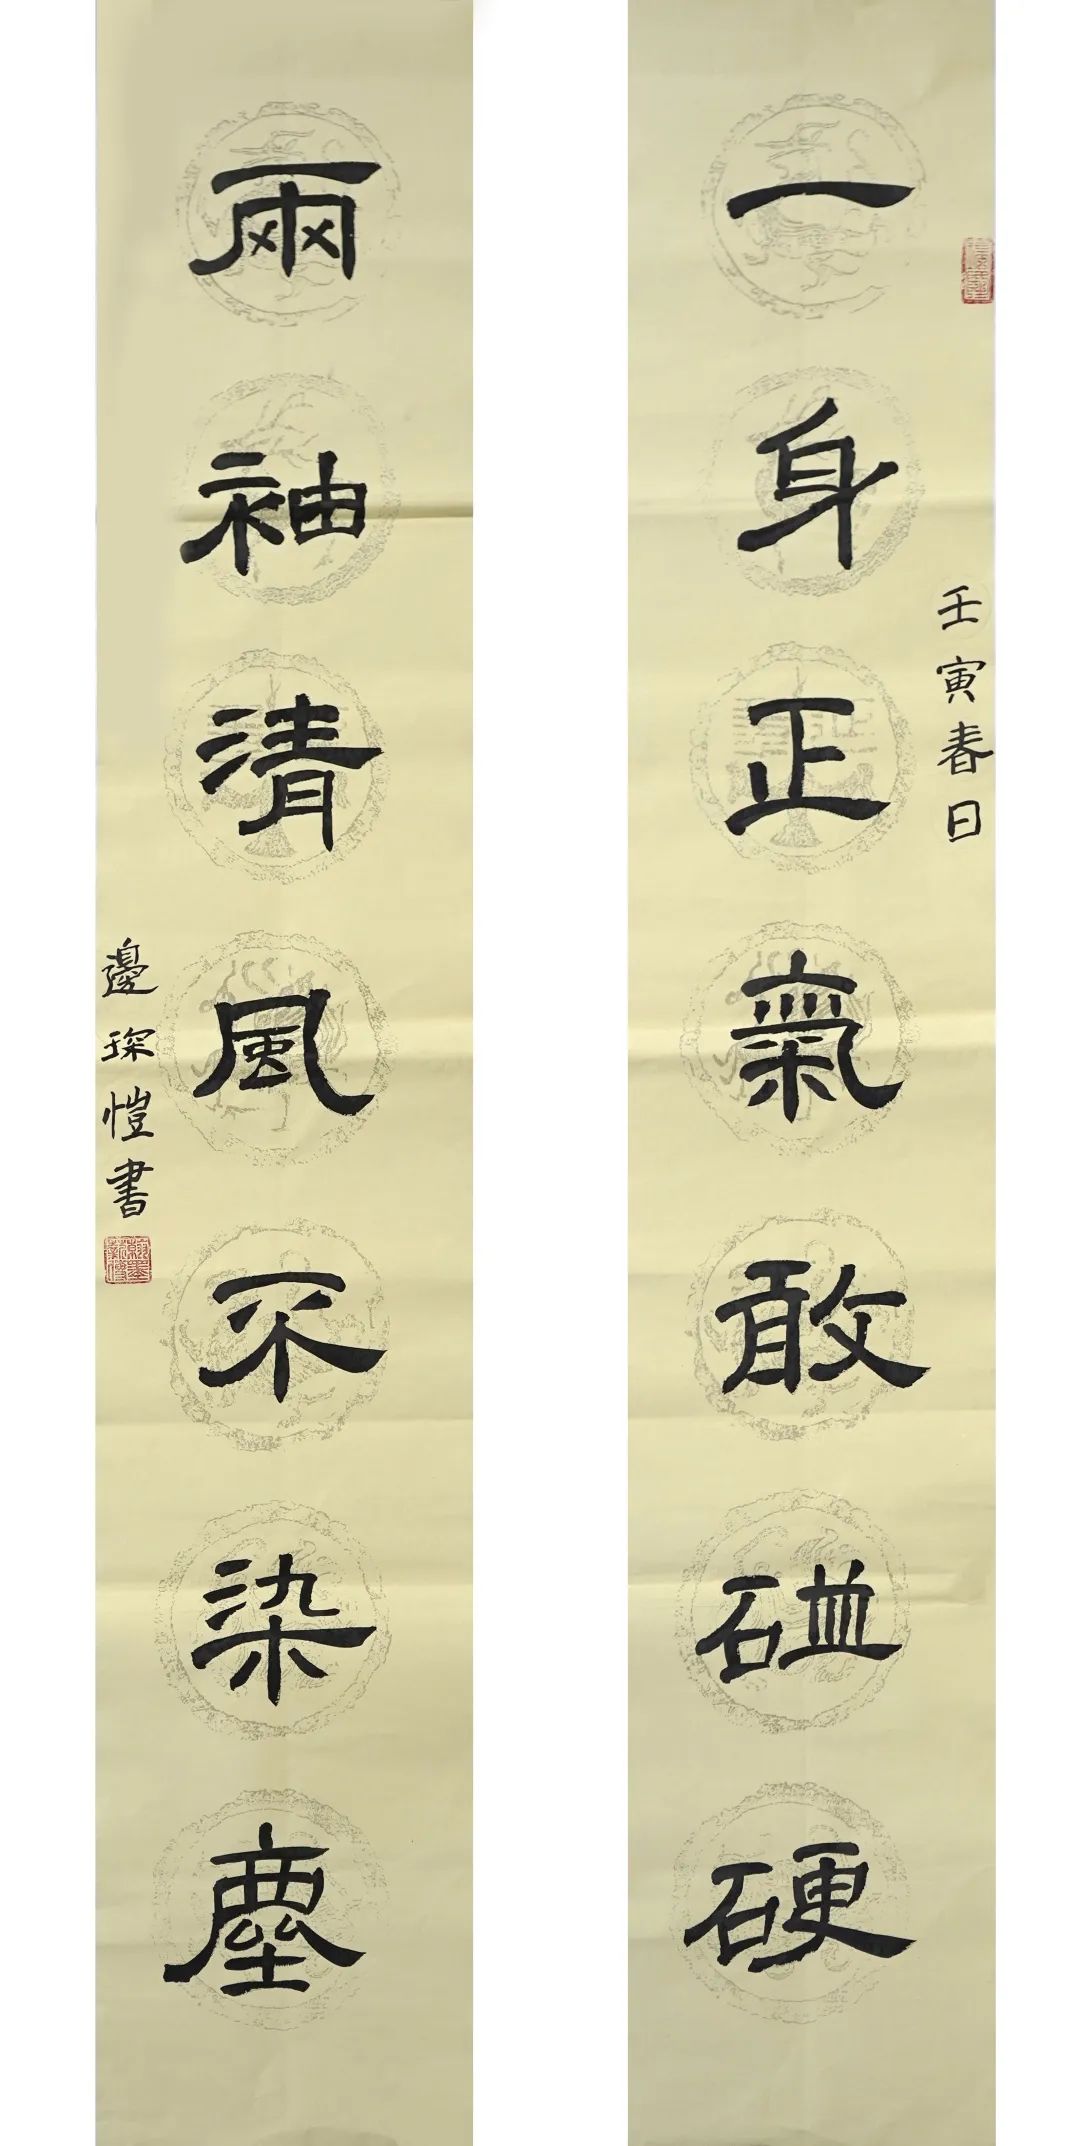 一身正氣敢碰硬
壬寅春日
兩袖清風不染塵
邊琛愷書